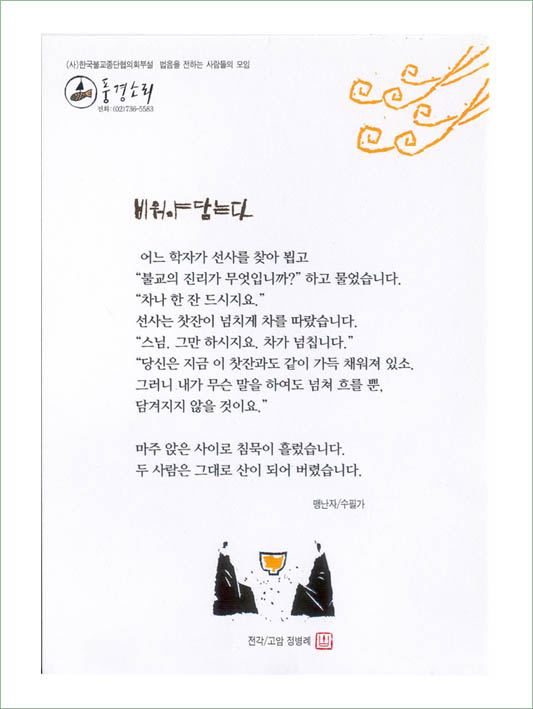 (사)한국불교종단협의회부설 법음을 전하는 사람들의 모임
풍경소리
전화: (02)736-5583
비워야 담는다
어느 학자가 선사를 찾아 뵙고
“불교의 진리가 무엇입니까?” 하고 물었습니다.
“차나 한 잔 드시지요.”
선사는 찻잔이 넘치게 차를 따랐습니다.
“스님. 그만 하시지요. 차가 넘칩니다.”
“당신은 지금 이 찻잔과도 같이 가득 채워져 있소.
그러니 내가 무슨 말을 하여도 넘쳐 흐를 뿐,
담겨지지 않을 것이요.”
마주 앉은 사이로 침묵이 흘렀습니다.
두 사람은 그대로 산이 되어 버렸습니다.
맹난자/수필가
전각/고암 정병례